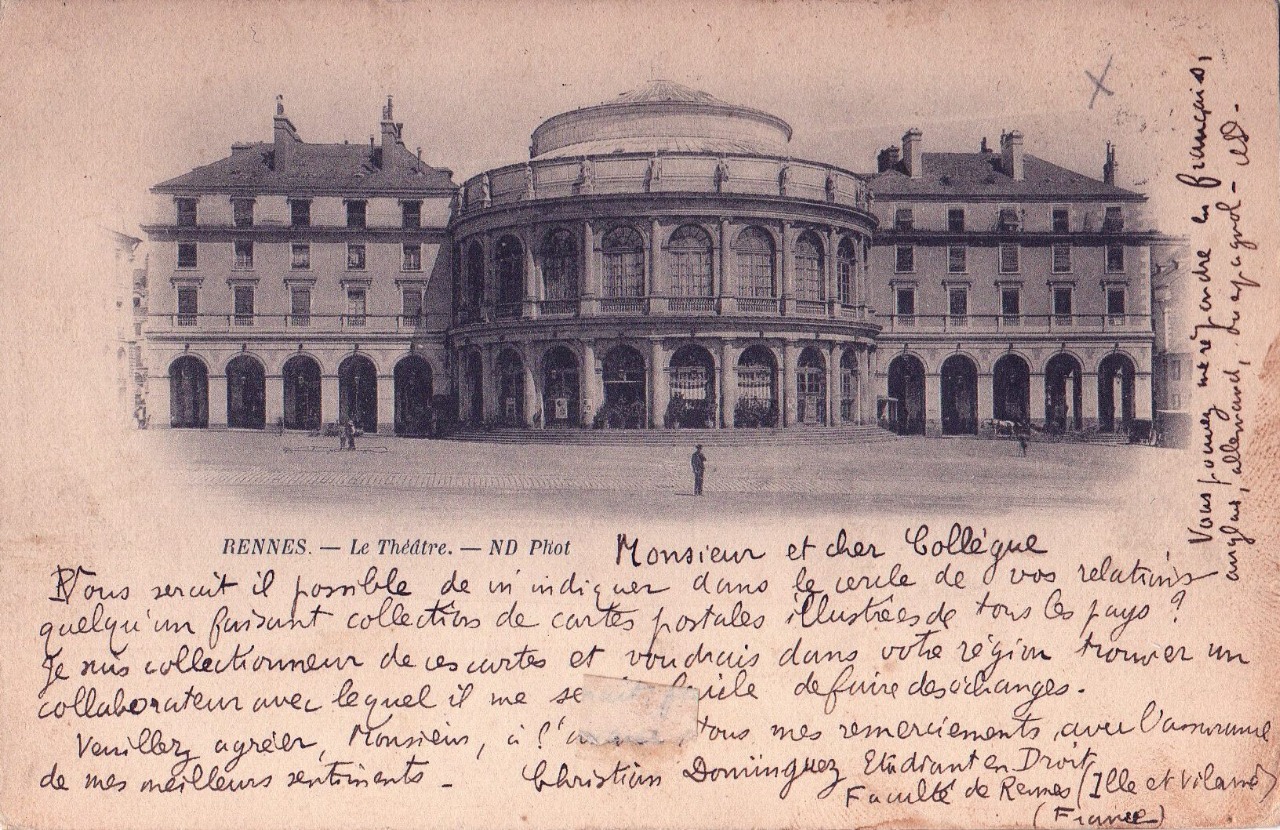 RENNES. — Le Théâtre. — ND Phot
Monsieur et cher Collègue
Vous serait il possible de m'indiquer dans le cercle de vos relations
quelqu'un faisant collection de cartes postales illustrées de tous les pays ?
Je suis collectionneur de ces cartes et voudrais dans votre région trouver un
collaborateur avec lequel il me se facile de faire des échanges.
Veuillez agréer, Monsieur, à l' tous mes remerciements, avec l'assurance
de mes meilleurs sentiments —
Christian Dominguez Etudiant en Droit
Faculté de Rennes (Ille et Vilaine)
(France)
Vous pouvez me répondre en français,
anglais, allemand, espagnol —